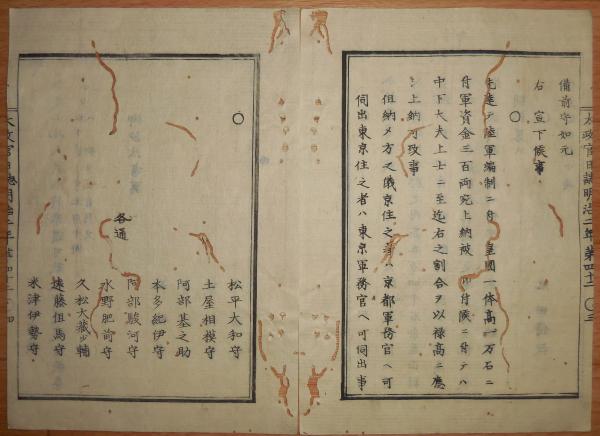 備前守如元
右 宣下候事
○
先達テ陸軍編制ニ付 皇國一体高一万石ニ
付軍資金三百両宛上納被 付候ニ付テハ
中下大夫上士ニ至迄右之割合ヲ以禄高ニ應
シ上納可致事
但納メ方之儀京住之者ハ京都軍務官ヘ可
伺出東京住之者ハ東京軍務官ヘ可伺出事
太政官日誌明治二年第四十二 〇三
○
各通
松平大和守
土屋相模守
阿部基之助
本多紀伊守
阿部駿河守
水野肥前守
久松大蔵少輔
遠藤但馬守
米津伊勢守